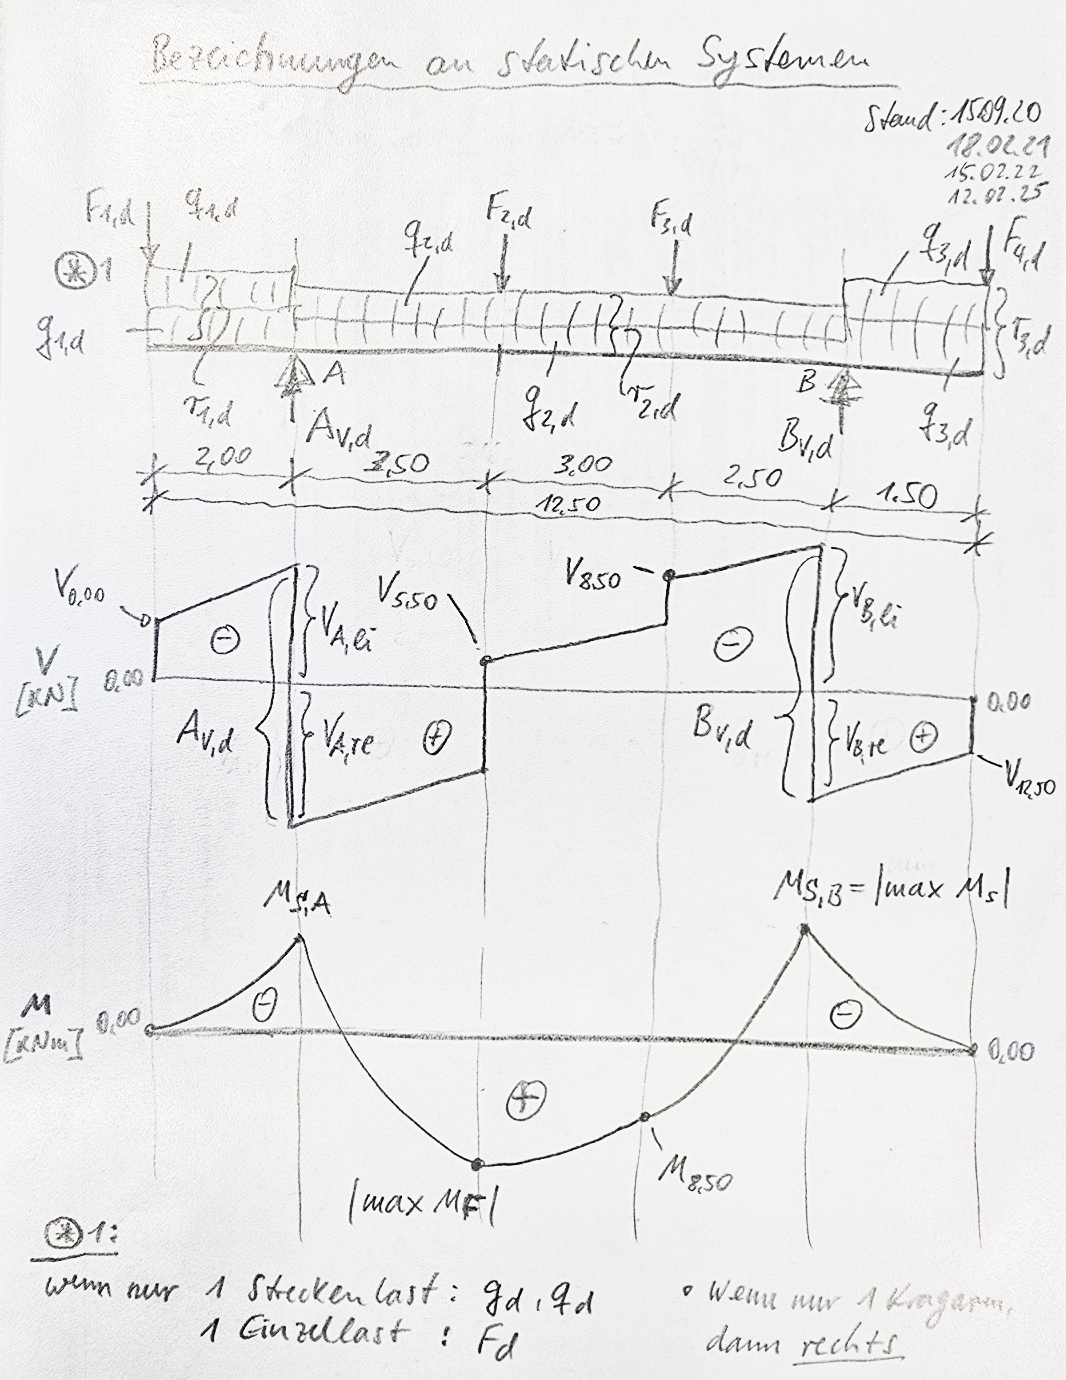 Bezeichnungen an statischen Systemen
Stand: 15.09.20
18.02.21
15.02.22
12.02.25
F1,d
q1,d
q2,d
F2,d
F3,d
q3,d
F4,d
*1
g1,d
r1,d
A
Av,d
g2,d
r2,d
B
Bv,d
g3,d
r3,d
2,00
3,50
3.00
2,50
1.50
12.50
V0,00
VA,li
V5,50
V8,50
VB,li
V
[KN]
0.00
-
-
0.00
Av,d
VA,re
+
Bv,d
VB,re
+
V12,50
MS,A
MS,B = |max MS|
M
[KNm]
0.00
-
-
0.00
+
|max MF|
M8,50
*1:
wenn nur 1 Streckenlast: gd, qd
1 Einzellast : Fd
• Wenn nur 1 Kragarm,
dann rechts